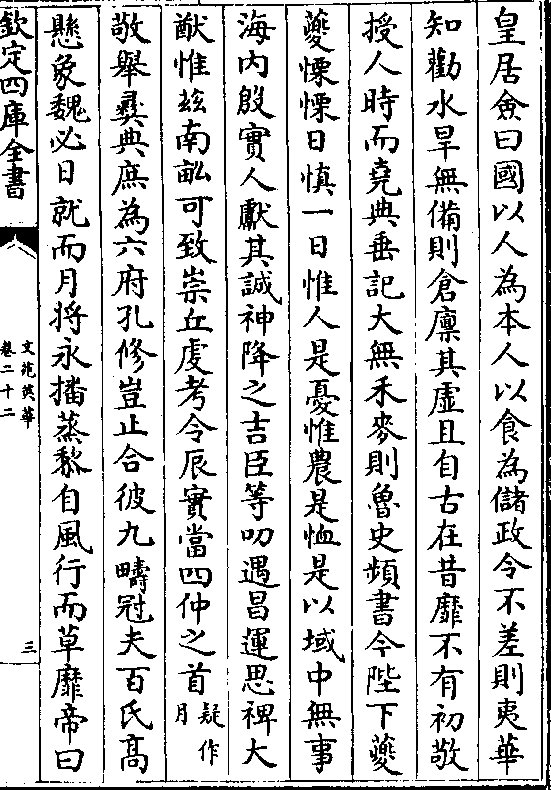 皇居僉曰國以人為本人以食為儲政令不差則夷華
知勸水旱無備則倉廪其虛且自古在昔靡不有初敬
授人時而堯典垂記大無禾麥則魯史頻書今陛下夔
夔慄慄日慎一日惟人是憂惟農是恤是以域中無事
海内殷實人獻其誠神降之吉臣等叨遇昌運思禆大
猷惟兹南畝可致崇丘虔考令辰實當四仲之首疑作月
敬舉彞典庶為六府孔修豈止合彼九疇冠夫百氏髙
懸象魏必日就而月将永播蒸黎自風行而草靡帝曰
欽定四庫全書
文苑英華
卷二十二
三